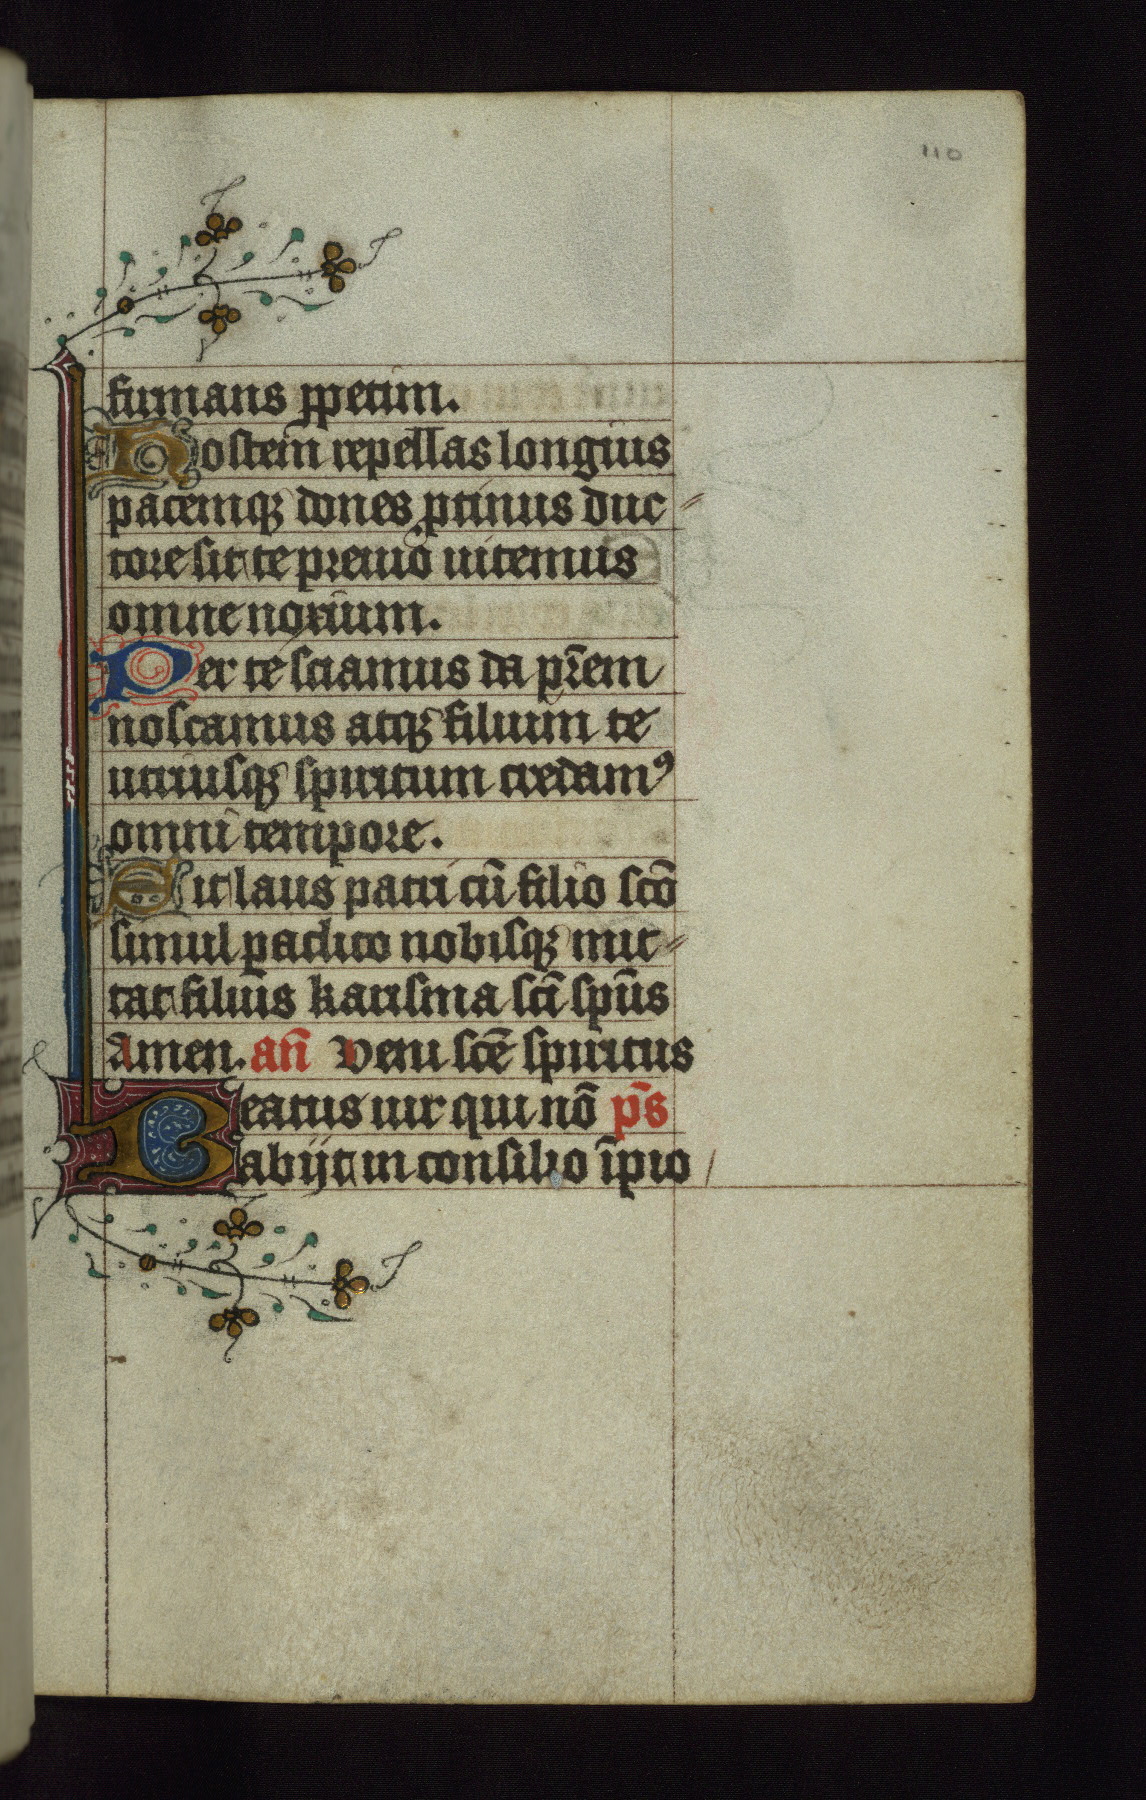 110
firmans ꝑpetim.
Hostem repellas longius
pacemqꝫ dones ꝓtinus duc
tore sic te preuio uitemus
omne noxium.
Per te sciamus da pr̄em
noscamus atqꝫ filium te
utriusqꝫ spiritum credamꝰ
omni tempore.
Sit laus patri cū filio sc̄o
simul ꝑaclito nobisqꝫ mit
tat filius karisma sc̄i sp̄us
Amen. an̄ Veni sc̄e spiritus
Beatus uir qui nō p̄s
abijt in consilio īpio